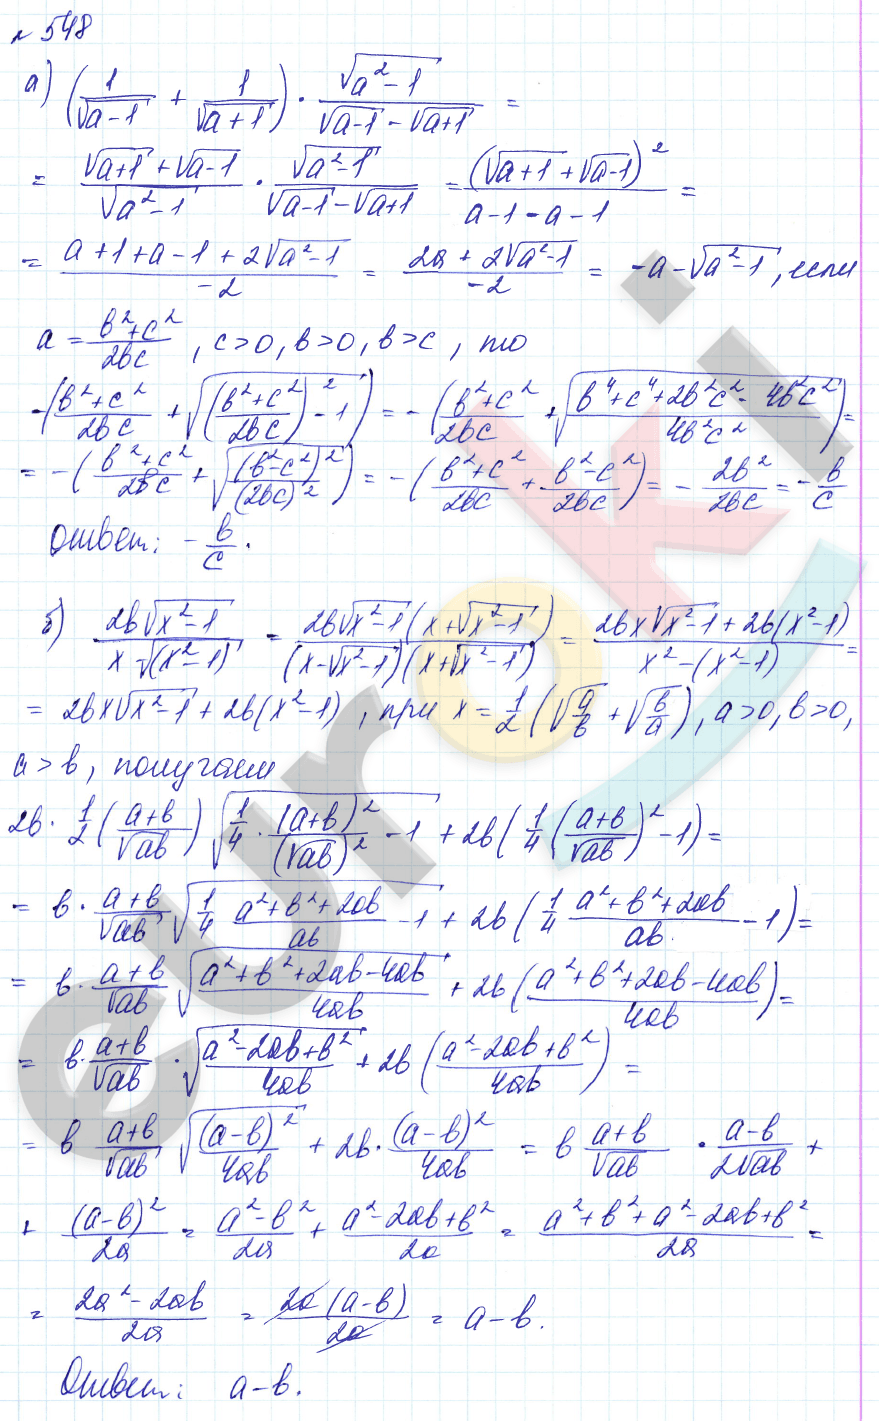 № 548
а) (1/√(a-1) + 1/√(a+1)) · √(a²-1)/(√(a-1) - √(a+1)) =
= (√(a+1) + √(a-1))/√(a²-1) · √(a²-1)/(√(a-1) - √(a+1)) = (√(a+1) + √(a-1))²/(a-1-a-1) =
= (a+1+a-1+2√(a²-1))/(-2) = (2a+2√(a²-1))/(-2) = -a-√(a²-1), если
a = (b²+c²)/(2bc), c>0, b>0, b>c, то
-((b²+c²)/(2bc) + √(((b²+c²)/(2bc))² - 1)) = -((b²+c²)/(2bc) + √((b⁴+c⁴+2b²c² - 4b²c²)/(4b²c²))) =
= -((b²+c²)/(2bc) + √((b²-c²)²/(2bc)²)) = -((b²+c²)/(2bc) + (b²-c²)/(2bc)) = -2b²/(2bc) = -b/c
Ответ: -b/c.
б) 2b√(x²-1)/(x-√(x²-1)) = 2b√(x²-1)(x+√(x²-1))/((x-√(x²-1))(x+√(x²-1))) = (2bx√(x²-1)+2b(x²-1))/(x²-(x²-1)) =
= 2bx√(x²-1)+2b(x²-1), при x = 1/2(√(a/b)+√(b/a)), a>0, b>0,
a>b, получаем
2b · 1/2((a+b)/√(ab))√(1/4 · (a+b)²/(√(ab))² - 1) + 2b(1/4((a+b)/√(ab))² - 1) =
= b · (a+b)/√(ab) √(1/4 (a²+b²+2ab)/(ab) - 1) + 2b(1/4 (a²+b²+2ab)/(ab) - 1) =
= b · (a+b)/√(ab) √((a²+b²+2ab-4ab)/(4ab)) + 2b((a²+b²+2ab-4ab)/(4ab)) =
= b · (a+b)/√(ab) · √((a²-2ab+b²)/(4ab)) + 2b((a²-2ab+b²)/(4ab)) =
= b (a+b)/√(ab) √((a-b)²/(4ab)) + 2b · (a-b)²/(4ab) = b (a+b)/√(ab) · (a-b)/(2√(ab)) +
+ (a-b)²/(2a) = (a²-b²)/(2a) + (a²-2ab+b²)/(2a) = (a²+b²+a²-2ab+b²)/(2a) =
= (2a²-2ab)/(2a) = 2a(a-b)/(2a) = a-b.
Ответ: a-b.
euroki